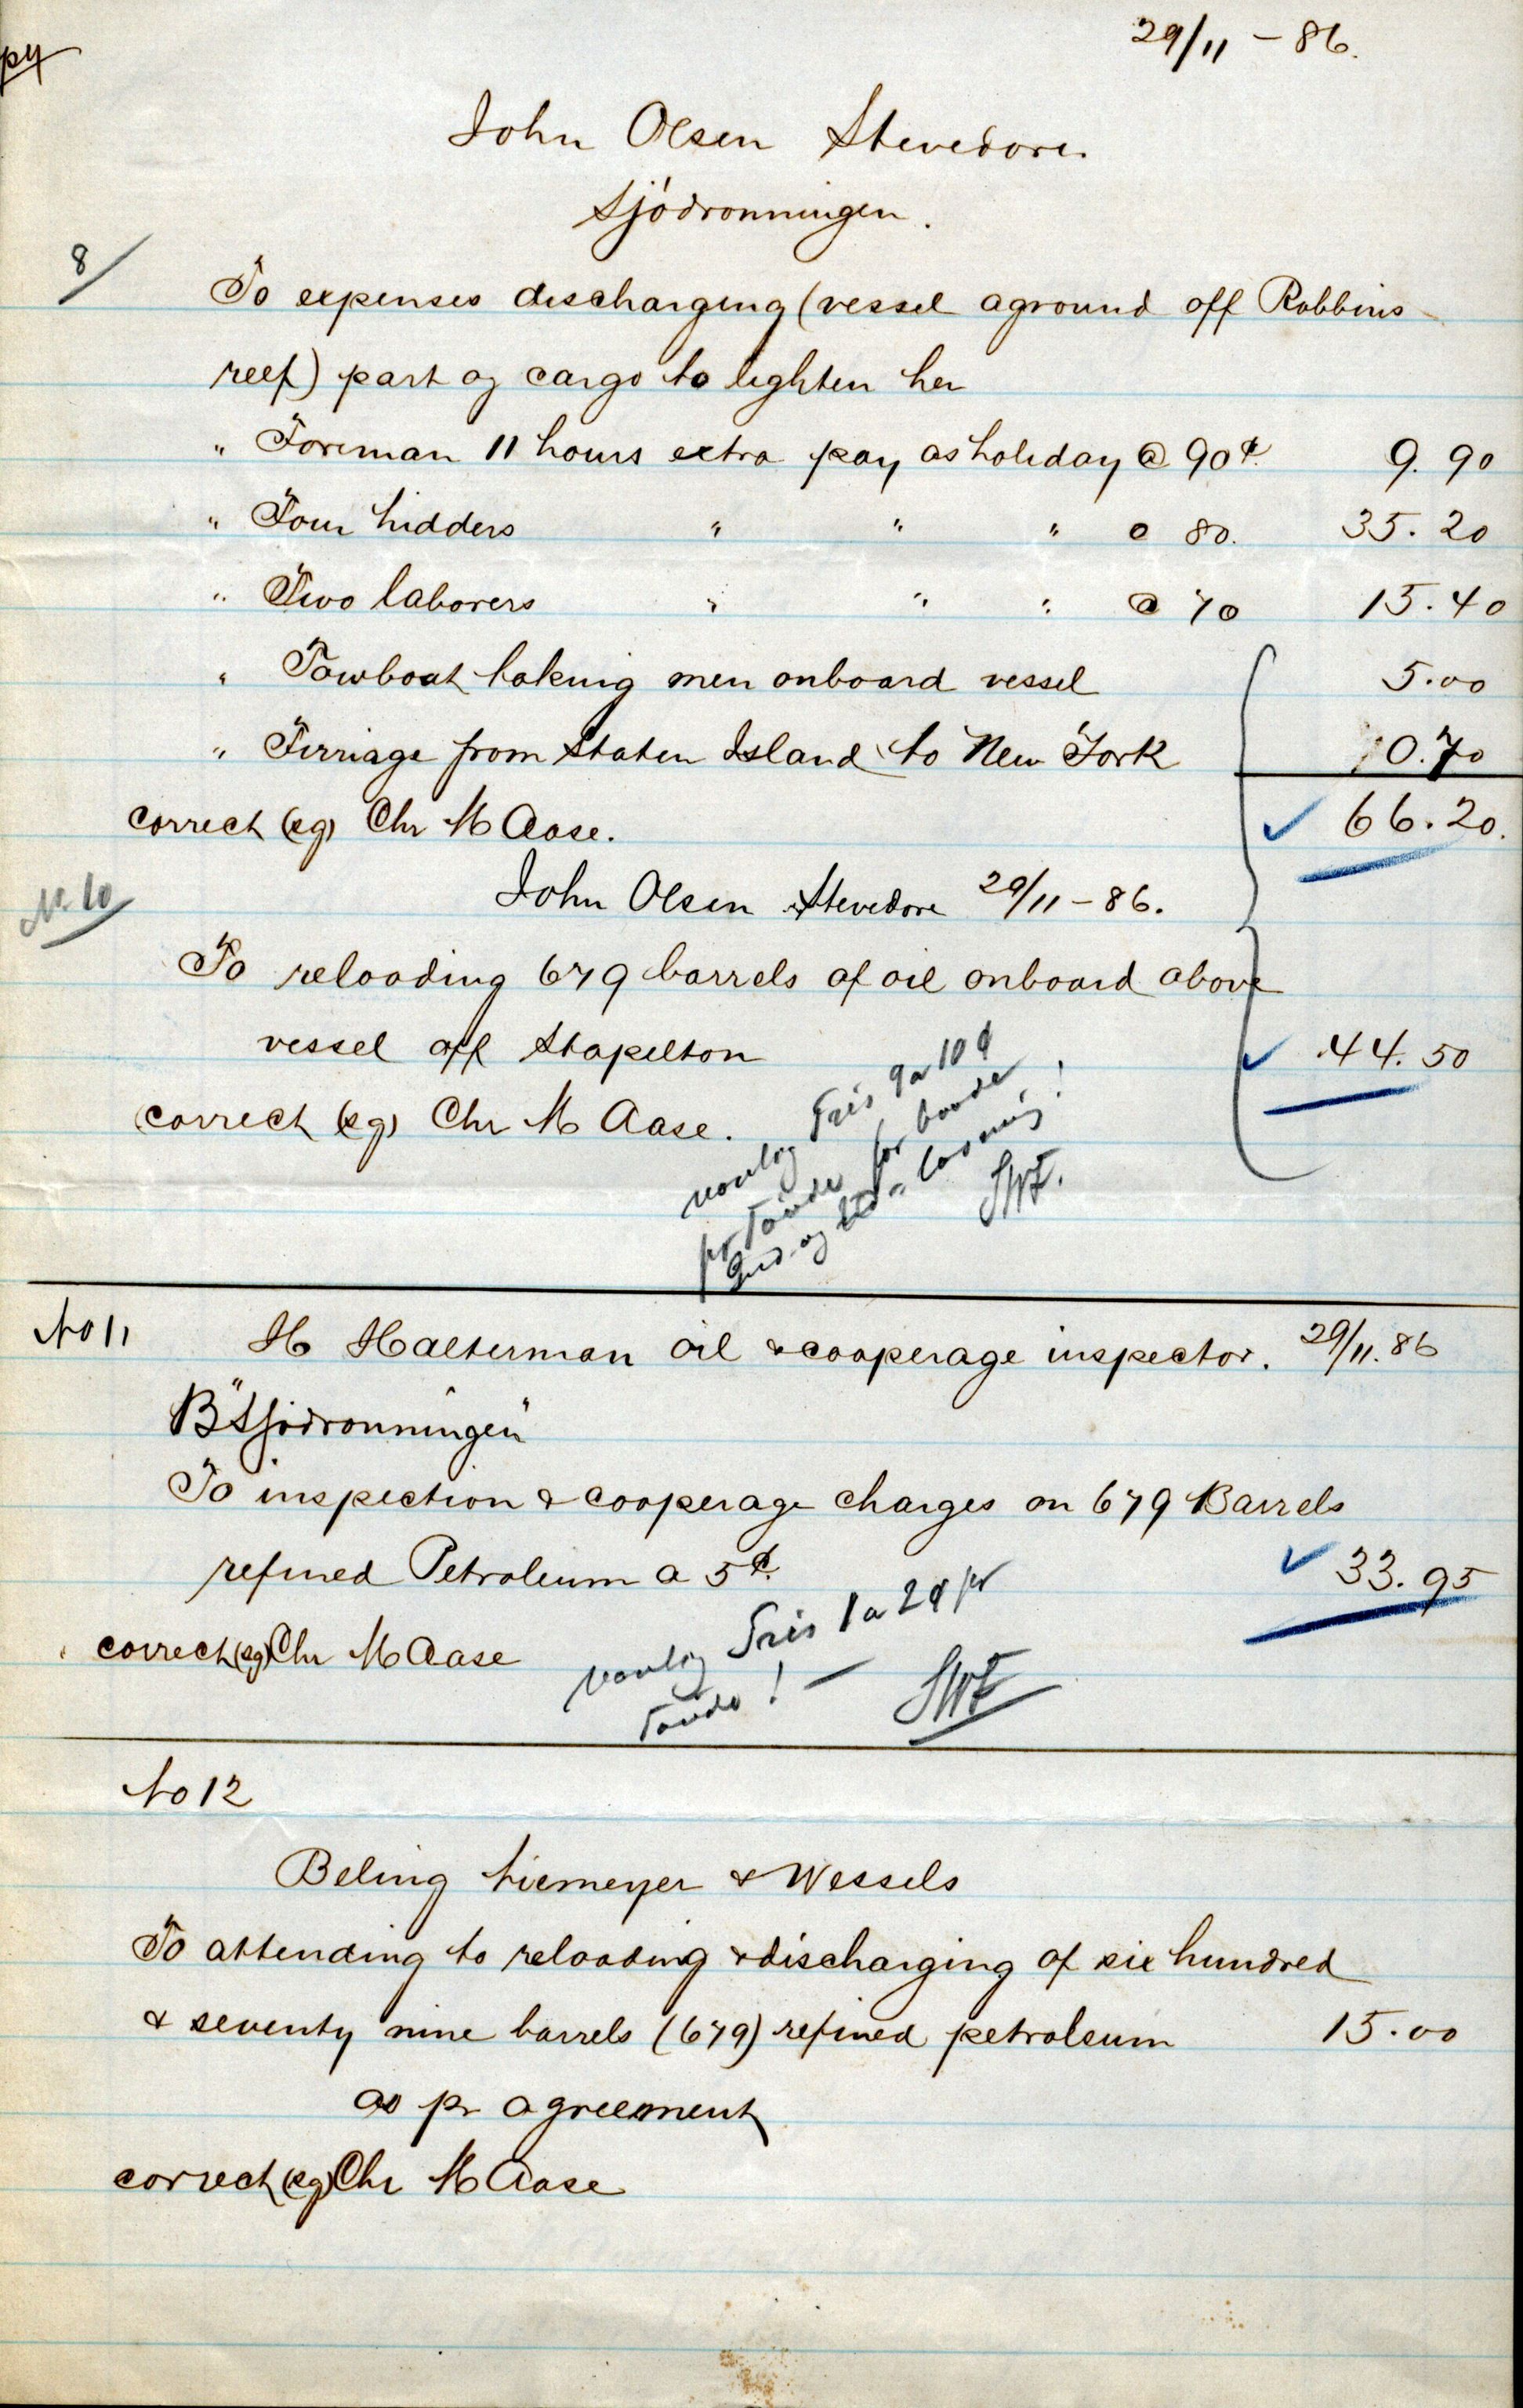 py
29/11 - 86.
John Olsen Stevedore.
Sjödronningen.
8/
To expenses discharging (vessel aground off Robbins
reef) part og cargo to lighten her
" Foreman 11 hours extra pay as holiday @ 90¢. 9.90
" Four hidders " " " @ 80. 35.20
" Two laborers " " " @ 70 15.40
" Towboat taking men onboard vessel 5.00
" Ferriage from Staten Island to New York 0.70
correct (sg) Chr M Aase. 66.20.
No 10
John Olsen Stevedore 29/11 - 86.
To reloading 679 barrels of oil onboard above
vessel off Stapelton 44.50
correct (sg) Chr M Aase.
vanlig Pris 9 a 10 ¢
pr Tønde for baade
Ind- og Ud- losning!
No 11 H Halterman oil & cooperage inspector. 29/11. 86
B "Sjödronningen"
To inspection & cooperage charges on 679 Barrels
refined Petroleum a 5¢. 33.95
correct (sg) Chr M Aase
vanlig Pris 1 a 2¢ pr
Tønde! —
No 12
Beling Niemeyer & Wessels
To attending to reloading & discharging of six hundred
& seventy nine barrels (679) refined petroleum 15.00
as pr agreement
correct (sg) Chr M Aase